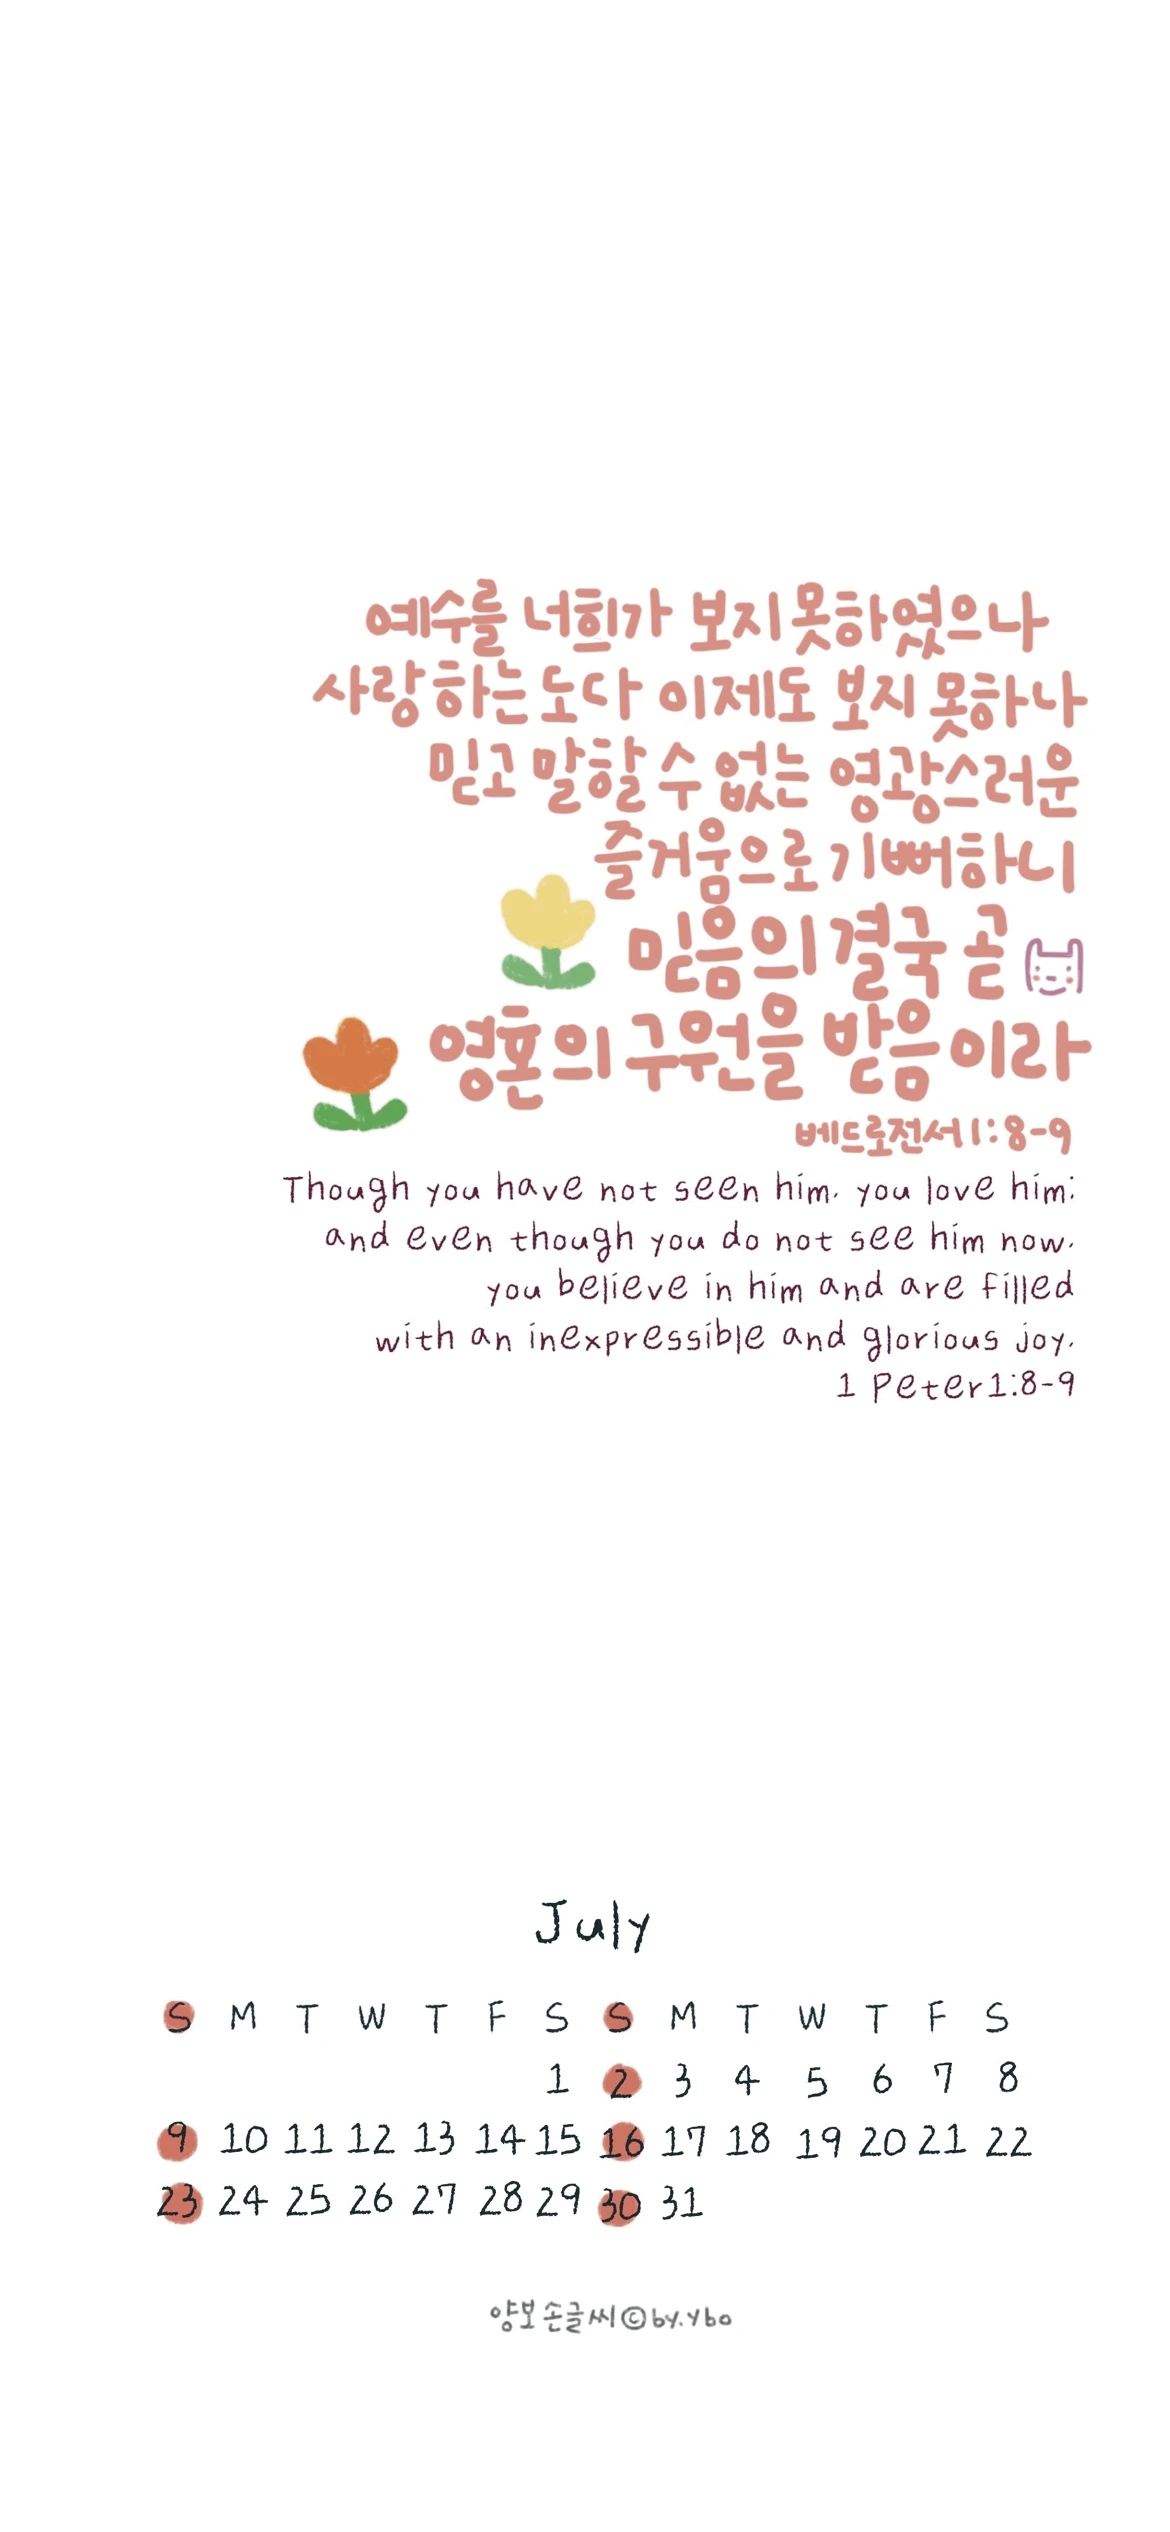 예수를 너희가 보지 못하였으나
사랑하는도다 이제도 보지 못하나
믿고 말할 수 없는 영광스러운
즐거움으로 기뻐하니
믿음의 결국 곧
영혼의 구원을 받음이라
베드로전서 1:8-9
Though you have not seen him, you love him;
and even though you do not see him now,
you believe in him and are filled
with an inexpressible and glorious joy,
1 Peter 1:8-9
July
S M T W T F S S M T W T F S
1 2 3 4 5 6 7 8
9 10 11 12 13 14 15 16 17 18 19 20 21 22
23 24 25 26 27 28 29 30 31
양보손글씨©by.ybo